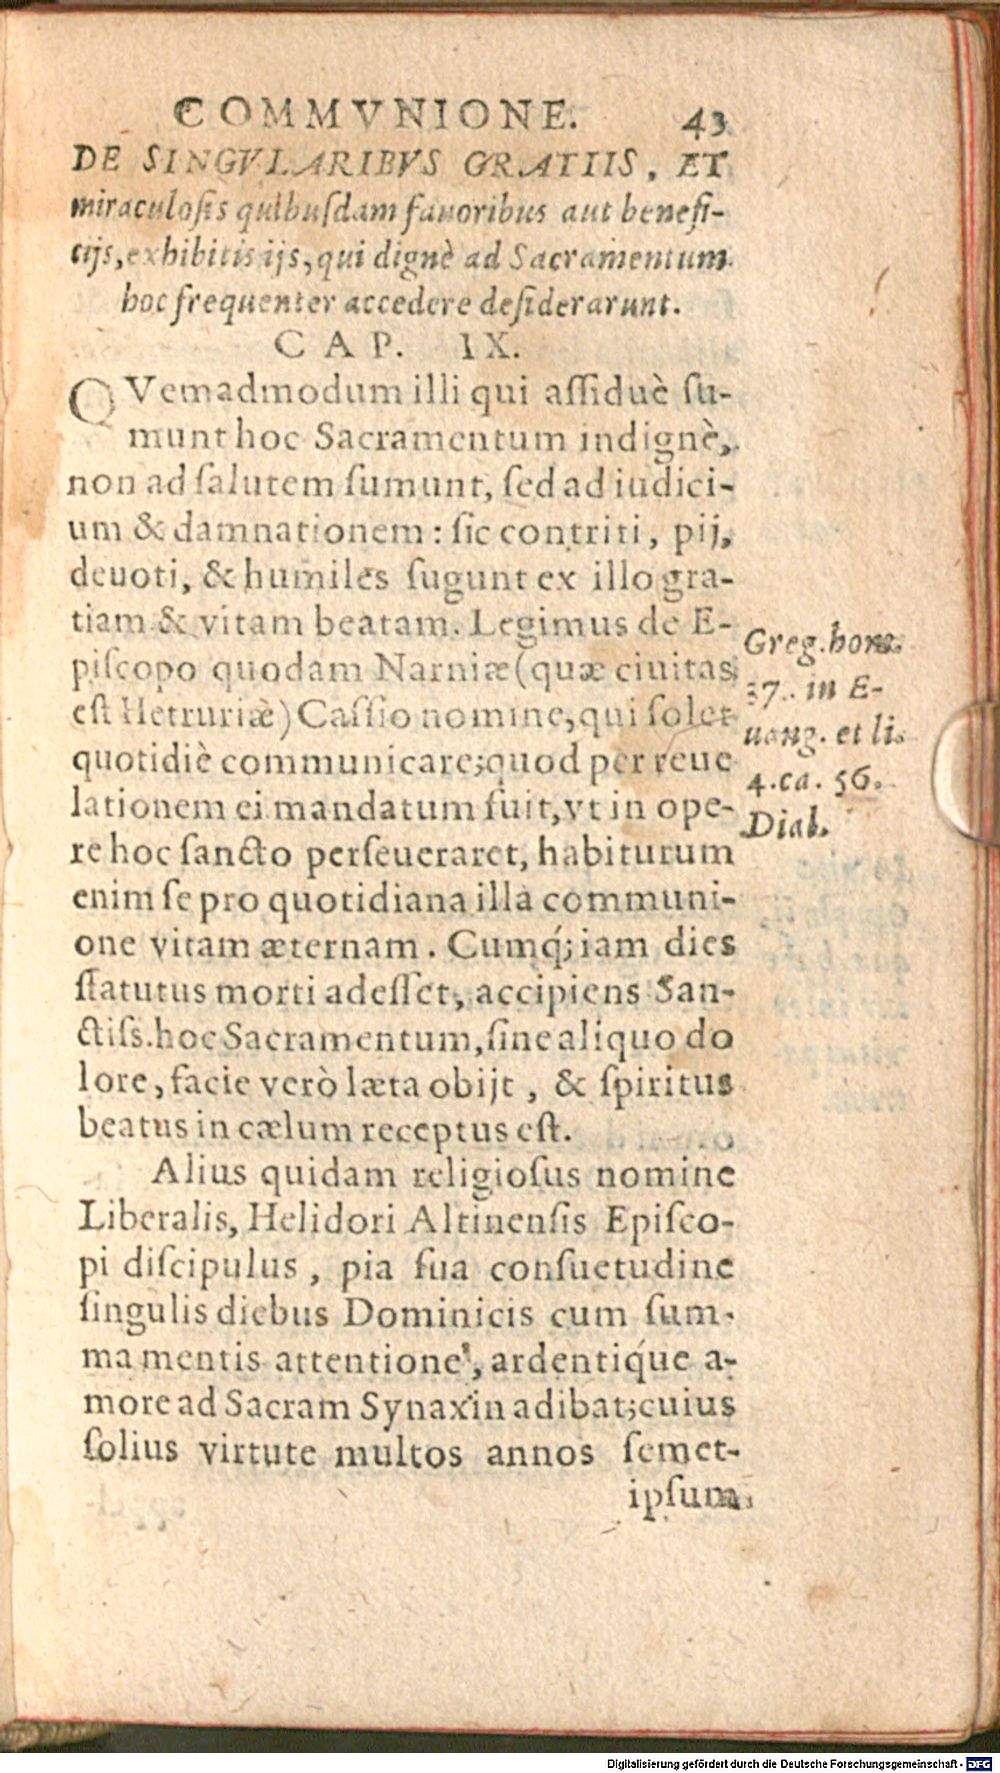 COMMVNIONE. 43
DE SINGVLARIBVS GRATIIS, ET
miraculoſis quibuſdam fauoribus aut benefi-
cijs, exhibitis ijs, qui dignè ad Sacramentum
hoc frequenter accedere deſiderarunt.
CAP. IX.
QVemadmodum illi qui aſſiduè ſu-
munt hoc Sacramentum indignè,
non ad ſalutem ſumunt, ſed ad iudici-
um & damnationem: ſic contriti, pij,
deuoti, & humiles ſugunt ex illo gra-
tiam & vitam beatam. Legimus de E-
piſcopo quodam Narniæ (quæ ciuitas
eſt Hetruriæ) Caſſio nomine, qui ſolet
quotidiè communicare; quod per reue
lationem ei mandatum fuit, vt in ope-
re hoc ſancto perſeueraret, habiturum
enim ſe pro quotidiana illa communi-
one vitam æternam. Cumq́; iam dies
ſtatutus morti adeſſet, accipiens San-
ctiſs. hoc Sacramentum, ſine aliquo do
lore, facie verò læta obijt, & ſpiritus
beatus in cælum receptus eſt.
Alius quidam religioſus nomine
Liberalis, Helidori Altinenſis Epiſco-
pi diſcipulus, pia ſua conſuetudine
ſingulis diebus Dominicis cum ſum-
ma mentis attentione, ardentiq́ue a-
more ad Sacram Synaxin adibat; cuius
ſolius virtute multos annos ſemet-
ipſum
Greg. hom.
37. in E-
uang. et li.
4. ca. 56.
Dial.
Digitalisierung gefördert durch die Deutsche Forschungsgemeinschaft - DFG